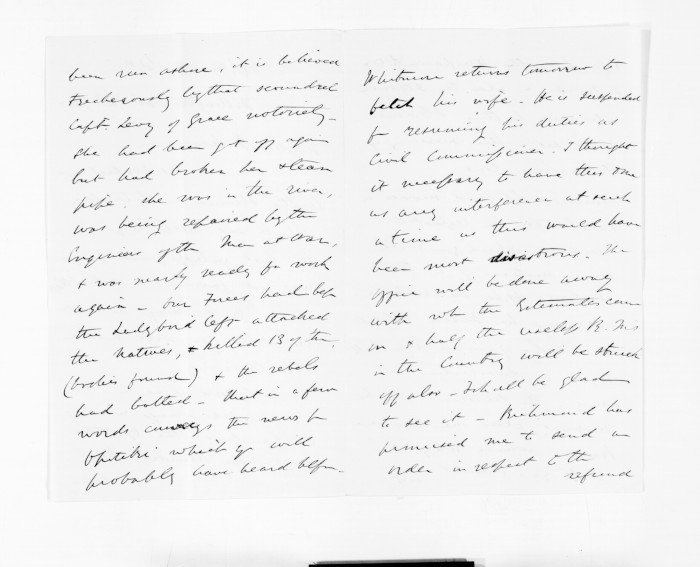 been run ashore, it is believed
treacherously by that scoundrel
Capt. Levy of Grace notoriety -
She had been got off again
but had broken her steam
pipe. She was in the river,
was being repaired by the
Engineers of the Man at War,
& was nearly ready for work
again - Our Forces had before
the Ladybird left attacked
the Natives, & killed 13 of them,
(bodies found) & the rebels
had bolted - that in a few
words conveys the news fr
Opotiki which you will
probably have heard before.
Whitmore returns tomorrow to
fetch his wife. He is suspended
for resuming his duties as
Civil Commissioner. I thought
it necessary to have this done
as any interference at such
a time as this would have
been most disastrous. The
office will be done away
with wh the Estimates come
on & half the useless R. Ms
in the Country will be struck
off also - I shall be glad
to see it - Richmond has
promised me to send an
order in respect to the
refund